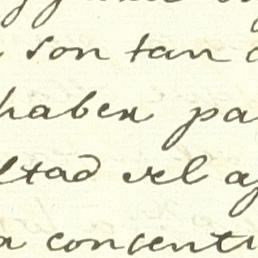 son tan
haber pa
ltad del a
a consenti